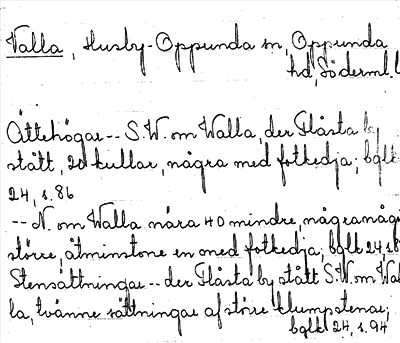 Valla, Husby-Oppunda sn, Oppunda
hd, Söderml.
Ättehögar -- S.W. om Walla, der Flåsta by
stått, 20 kullar, några med fotkedja; bglk
24, s. 86
-- N. om Walla nära 40 mindre, några
större, åtminstone en med fotkedja, bglk 24, s. 8
Stensättningar -- der Flåsta by stått S.W. om Wal
la, tvänne sättningar af större klumpstenar;
bglk 24, s. 94